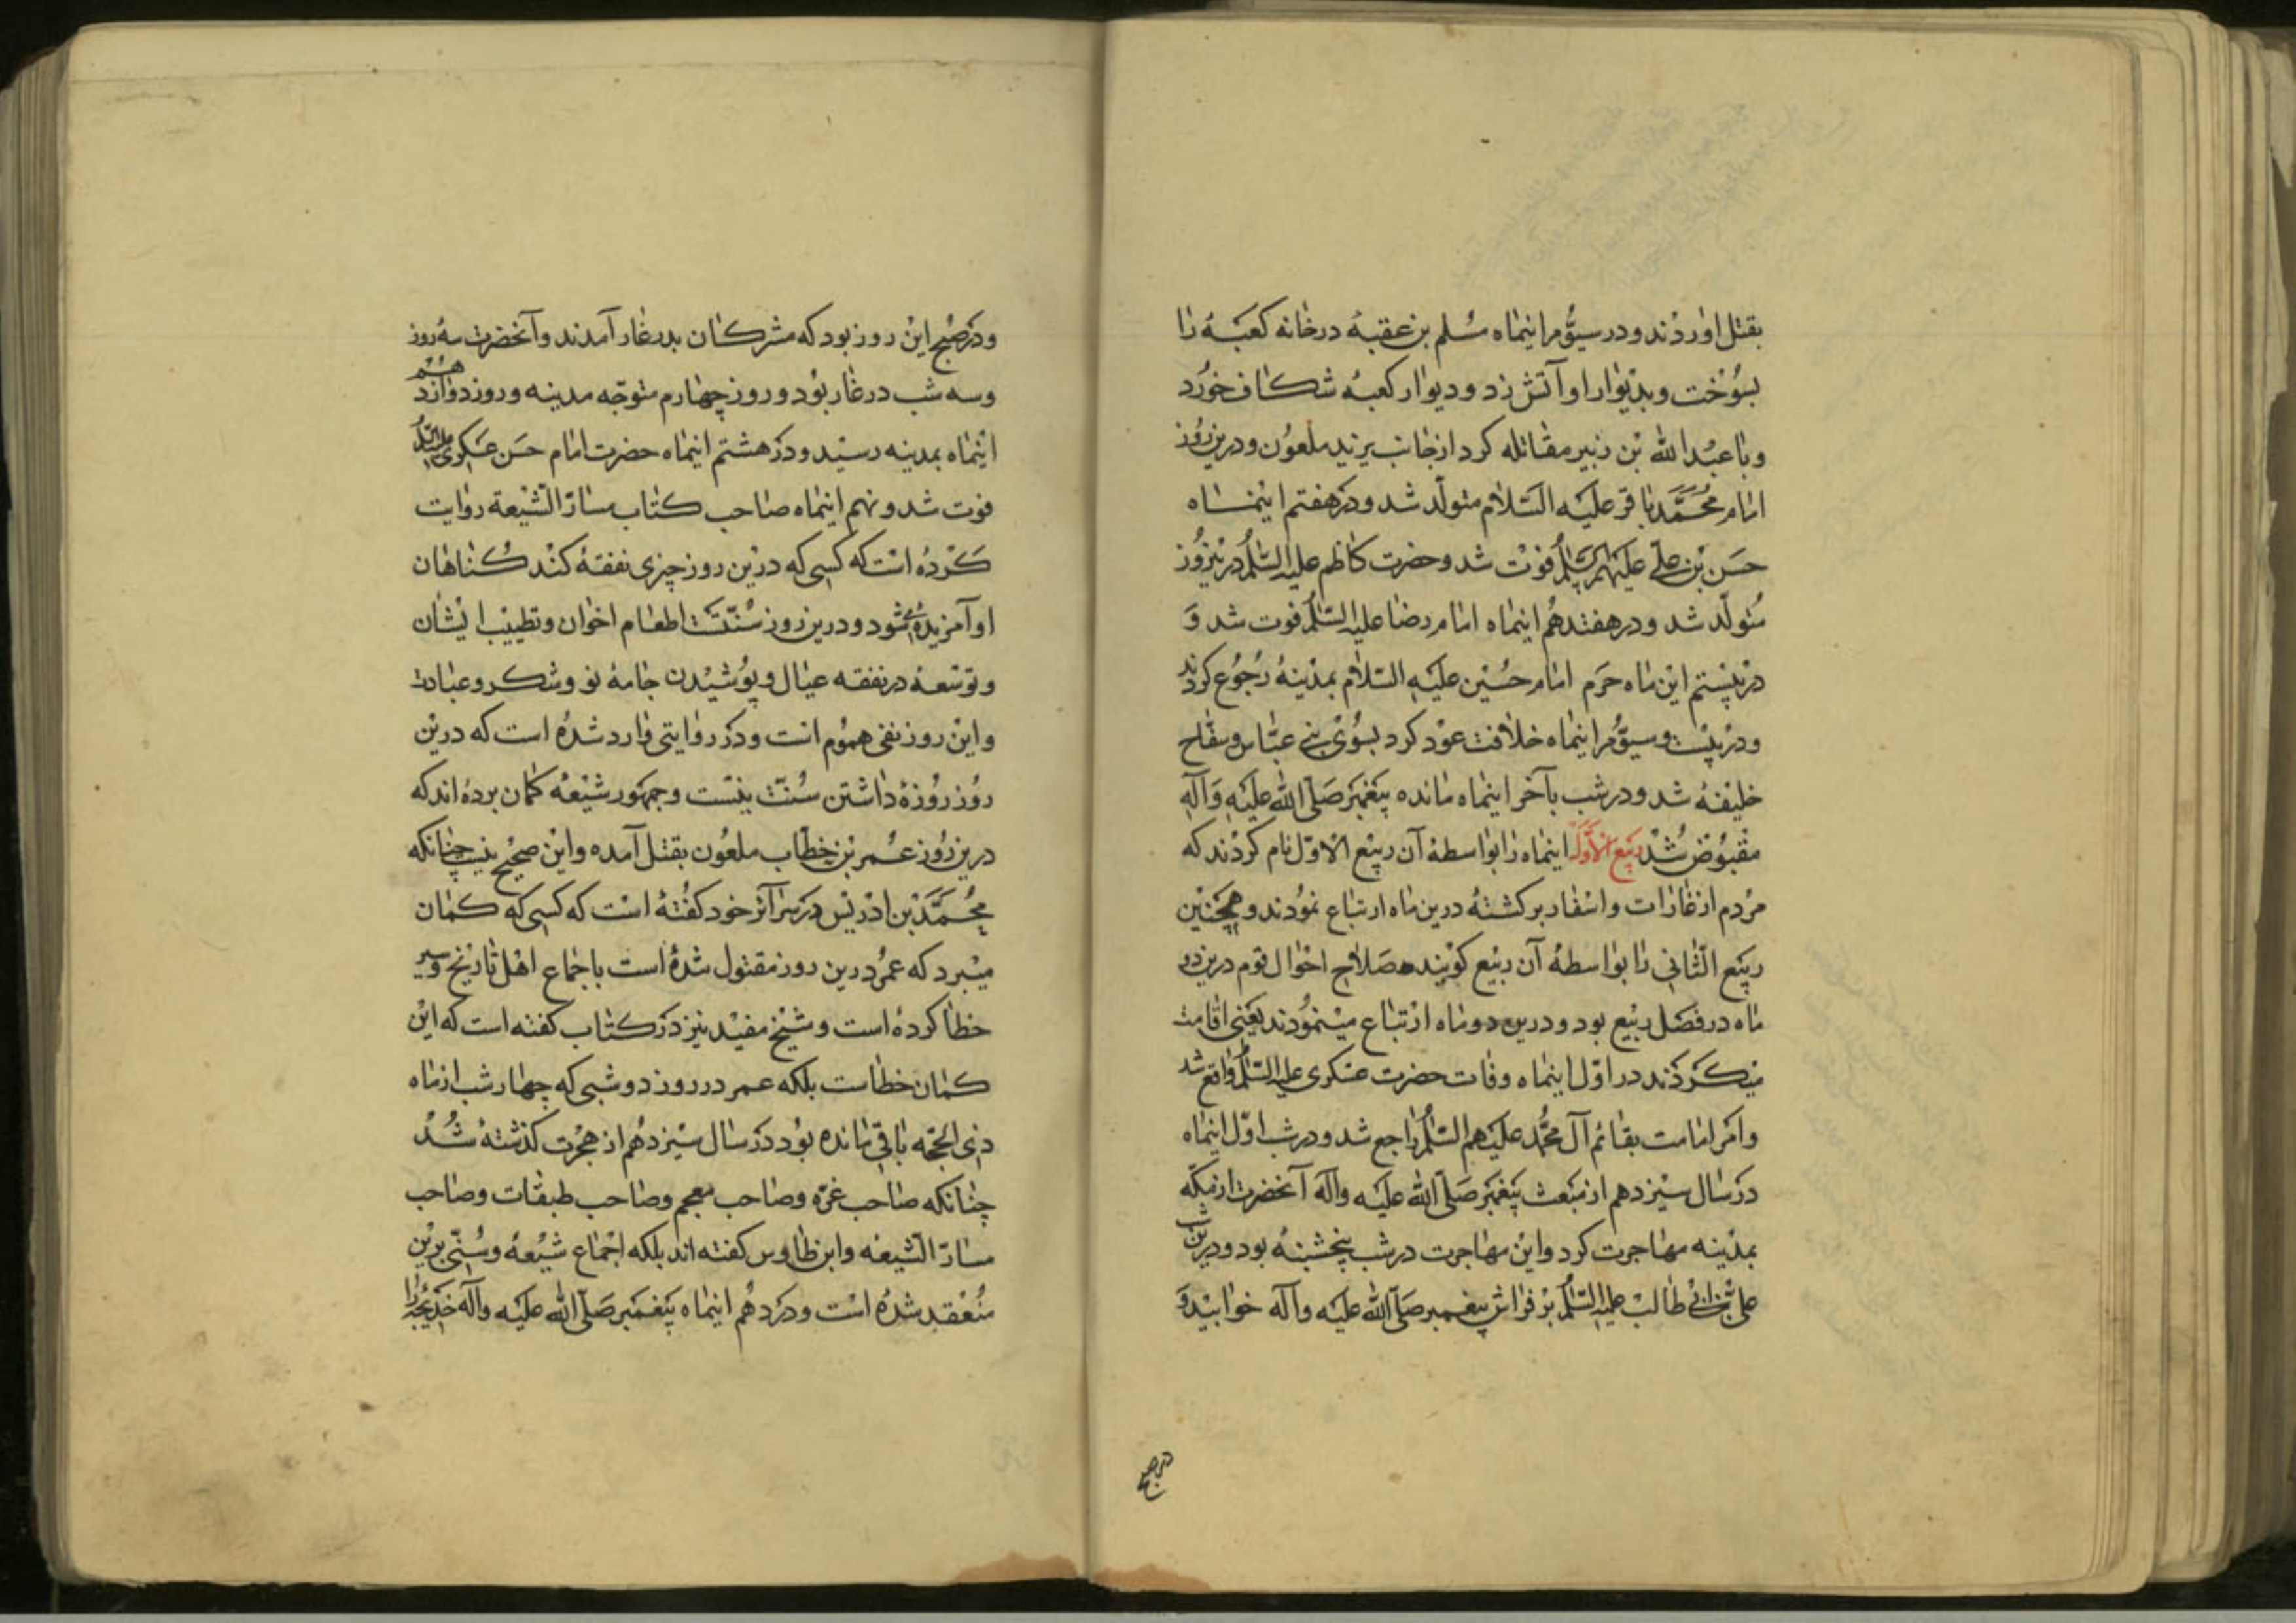 بقتل اوردند و در سیوّم اینماه مسلم بن عقبه در خانه کعبه را
بسوخت و بدیوار او آتش زد و دیوار کعبه شکاف خورد
و با عبدالله بن زبیر مقاتله کرد از جانب یزید ملعون و درین روز
امام محمّد باقر علیه السّلام متولّد شد و در هفتم اینماه
حسن بن علی علیهم السّلم فوت شد و حضرت کاظم علیه السّلم درین روز
متولّد شد و در هفتدهم اینماه امام رضا علیه السّلم فوت شد و
در بیستم این ماه حرم امام حسین علیه السّلام بمدینه رجوع کردند
و در بیست و سیوّم اینماه خلافت عود کرد بسوی بنی عبّاس و سفّاح
خلیفه شد و در شب بآخر اینماه مانده پیغمبر صلّی الله علیه و آله
مقبوض شد ربیع الأوّل اینماه را بواسطه آن ربیع الاوّل نام کردند که
مردم از غارات و اسفار برکشته درین ماه ارتباع نمودند و همچنین
ربیع الثّانی را بواسطه آن ربیع کویند صلاح احوال قوم درین دو
ماه در فصل ربیع بود و درین دو ماه ارتباع مینمودند یعنی اقامت
میکردند در اوّل اینماه وفات حضرت عسکری علیه السّلم واقع شد
و امر امامت بقائم آل محمّد علیهم السّلم راجع شد و در شب اوّل اینماه
در سال سیزدهم از مبعث پیغمبر صلّی الله علیه و آله آنحضرت از مکّه
بمدینه مهاجرت کرد و این مهاجرت در شب پنجشنبه بود و درین شب
علی بن ابی طالب علیه السّلم بر فراش پیغمبر صلّی الله علیه و آله خوابید و
در صبح
و در صبح این روز بود که مشرکان بدر غار آمدند و آنحضرت سه روز
و سه شب در غار بود و روز چهارم متوجّه مدینه و روز دوازدهم
اینماه بمدینه رسید و در هشتم اینماه حضرت امام حسن عسکری علیه السّلم
فوت شد و نهم اینماه صاحب کتاب مسارّ الشّیعة روایت
کرده است که کسی که درین روز چیزی نفقه کند کناهان
او آمرزیده شود و درین روز سنّت اطعام اخوان و تطییب ایشان
و توسعه در نفقه عیال و پوشیدن جامهٔ نو و شکر و عبادت
و این روز نفی هموم است و در روایتی وارد شده است که درین
روز روزه داشتن سنّت نیست و جمهور شیعه کمان برده اند که
درین روز عمر بن خطّاب ملعون بقتل آمده و این صحیح نیست چنانکه
محمّد بن ادریس در سرآئر خود کفته است که کسی که کمان
میبرد که عمر درین روز مقتول شده است باجماع اهل تاریخ و سیر
خطا کرده است و شیخ مفید نیز در کتاب کفته است که این
کمان خطاست بلکه عمر در روز دوشبی که چهار شب از ماه
ذی الحجّه باقی مانده بود در سال سیزدهم از هجرت کذشته شد
چنانکه صاحب غرّه و صاحب معجم و صاحب طبقات و صاحب
مسارّ الشّیعه و ابن طاوس کفته اند بلکه اجماع شیعه و سنّی برین
منعقد شده است و در دهم اینماه پیغمبر صلّی الله علیه و آله خدیجه را